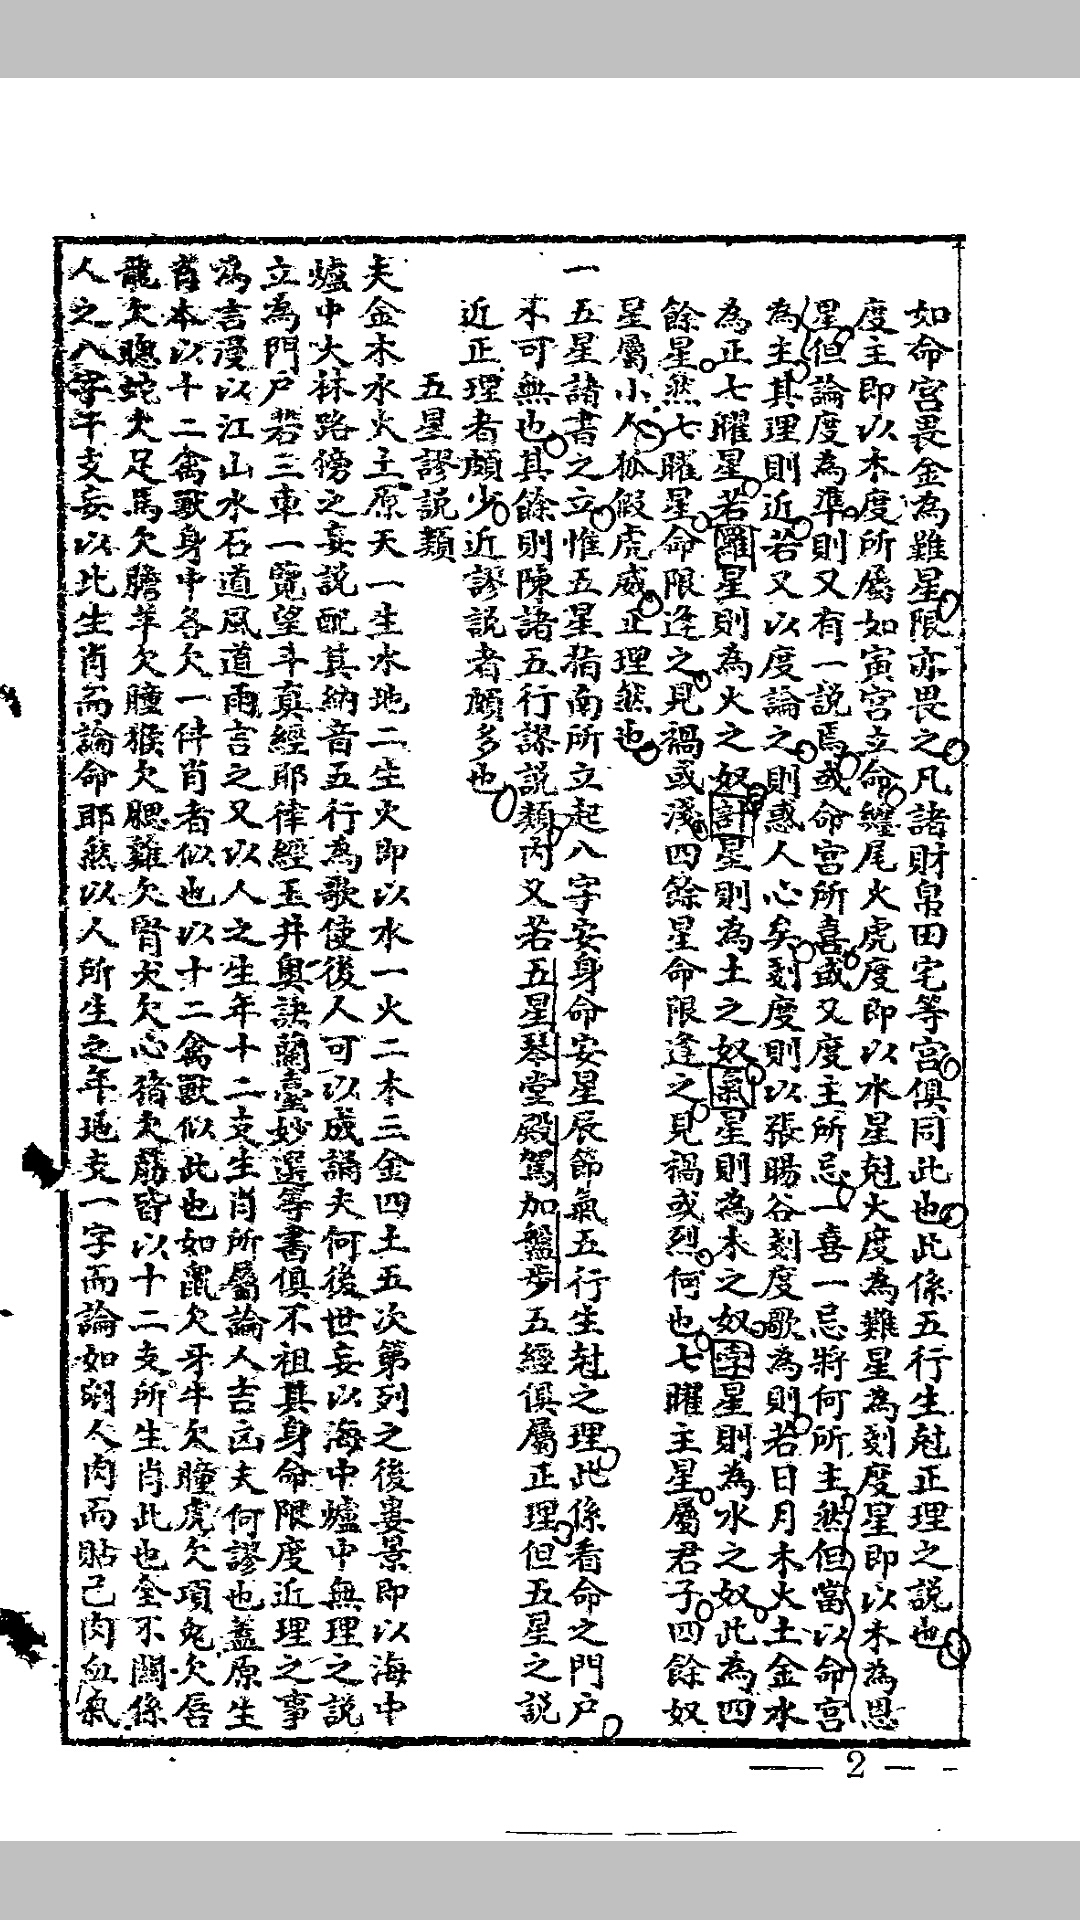 如命宮畏金為難星限亦畏之凡諸財帛田宅等宮俱同此也此係五行生尅正理之說也
度主即以木度所屬如寅宮立命纏尾火虎度即以水星尅火度為難星為刻度星即以木為恩
星但論度為準則又有一說焉或命宮所喜或又度主所忌一喜一忌將何所主然但當以命宮
為主其理則近若又以度論之則惑人心矣刻度則以張賜谷刻度歌為則若日月木火土金水
為正七曜星若羅星則為火之奴計星則為土之奴氣星則為木之奴孛星則為水之奴此為四
餘星然七曜星命限逢之見禍或淺四餘星命限逢之見禍或烈何也七曜主星屬君子四餘奴
星屬小人狐假虎威正理然也
一五星諸書之立惟五星指南所立起八字安身命安星辰節氣五行生尅之理此係看命之門戶
不可無也其餘則陳諸五行謬說類內又若五星琴堂殿駕加盤步五經俱屬正理但五星之說
近正理者頗少近謬說者頗多也
五星謬說類
夫金木水火土原天一生水地二生火即以水一火二木三金四土五次第列之後婁景即以海中
爐中大林路傍之妄說配其納音五行為歌使後人可以成誦夫何後世妄以海中爐中無理之說
立為門戶若三車一覽望斗真經耶律經玉井奧訣蘭臺妙選等書俱不祖其身命限度近理之事
為言漫以江山水石道風道雨言之又以人之生年十二支生肖所屬論人吉凶夫何謬也蓋原生
肖本以十二禽獸身中各欠一件肖者似也以十二禽獸似此也如鼠欠牙牛欠瞳虎欠項兔欠唇
龍欠聰蛇欠足馬欠膽羊欠瞳猴欠腮雞欠腎犬欠心猪欠筋皆以十二支所生肖此也全不關係
人之八字干支妄以此生肖而論命耶然以人所生之年地支一字而論如剮人肉而貼己肉血氣
2